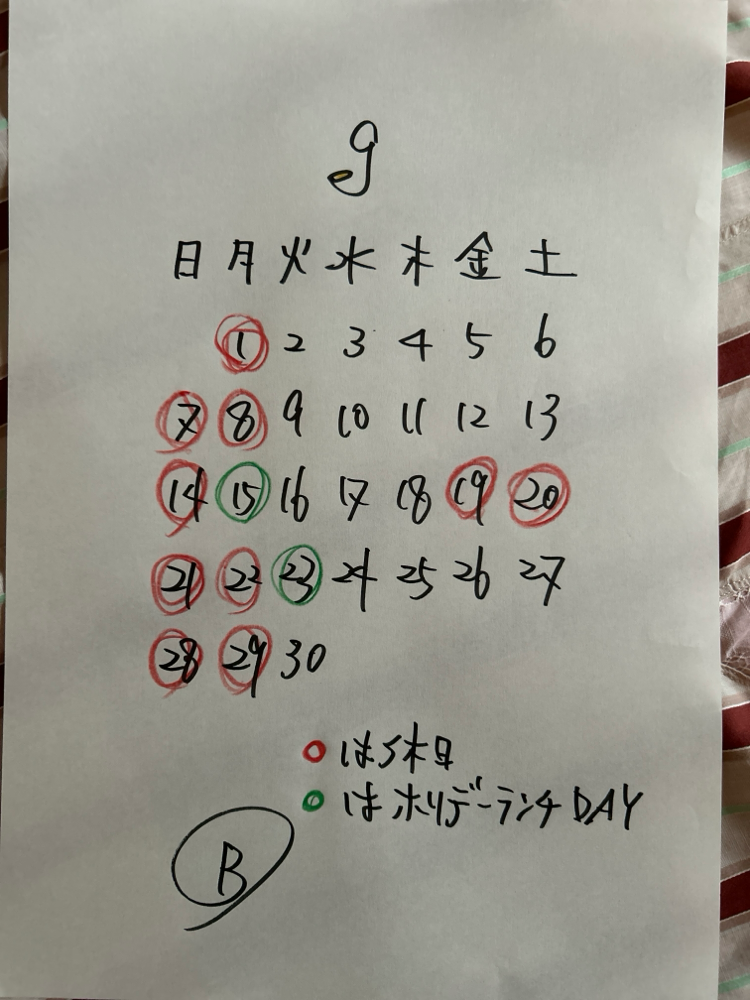 9
日 月 火 水 木 金 土
1 2 3 4 5 6
7 8 9 10 11 12 13
14 15 16 17 18 19 20
21 22 23 24 25 26 27
28 29 30
○は休日
○はホリデーランチDAY
B